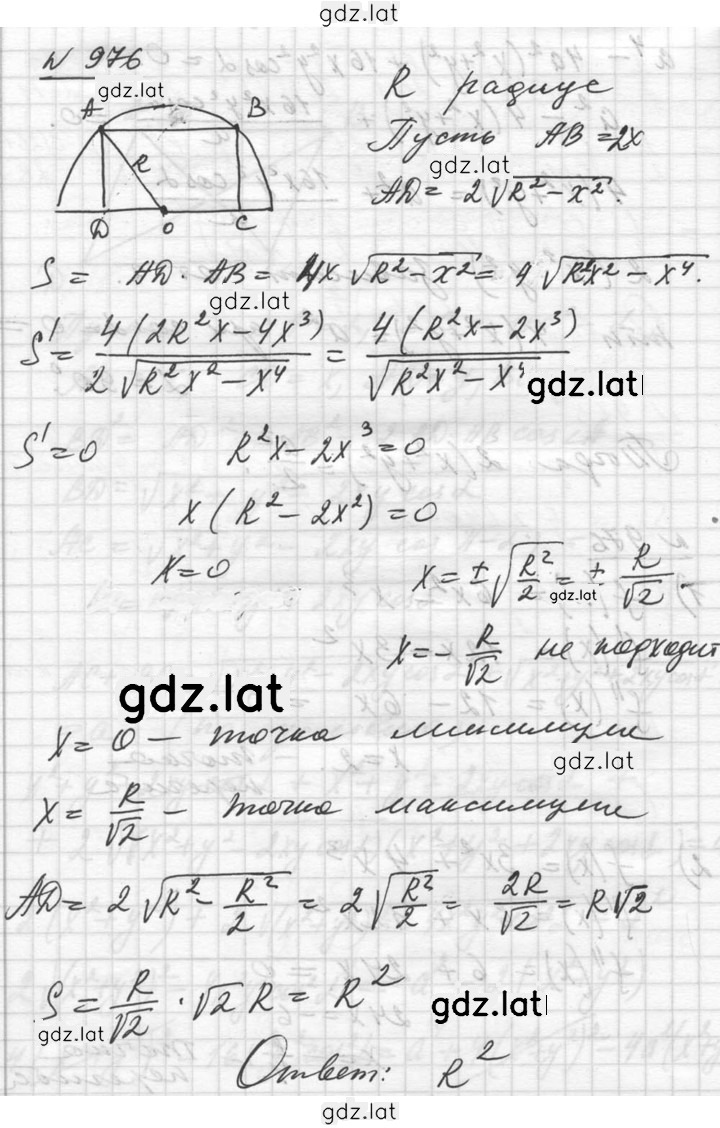 gdz.lat
№ 976
gdz.lat
A B
R
D O C
R радиус
Пусть AB = 2x
gdz.lat
AD = 2√(R² − x²).
S = AD · AB = 4x √(R² − x²) = 4 √(R²x² − x⁴).
gdz.lat
S' = 4(2R²x − 4x³) / (2√(R²x² − x⁴)) = 4(R²x − 2x³) / √(R²x² − x⁴)
gdz.lat
S' = 0 R²x − 2x³ = 0
x(R² − 2x²) = 0
x = 0 x = ±√(R²/2) = ± R/√2.
gdz.lat
x = − R/√2 не подходит
gdz.lat
x = 0 – точка минимума
gdz.lat
x = R/√2 – точка максимума
AD = 2√(R² − R²/2) = 2√(R²/2) = 2R/√2 = R√2
S = R/√2 · √2 R = R²
gdz.lat
gdz.lat
Ответ: R²
gdz.lat